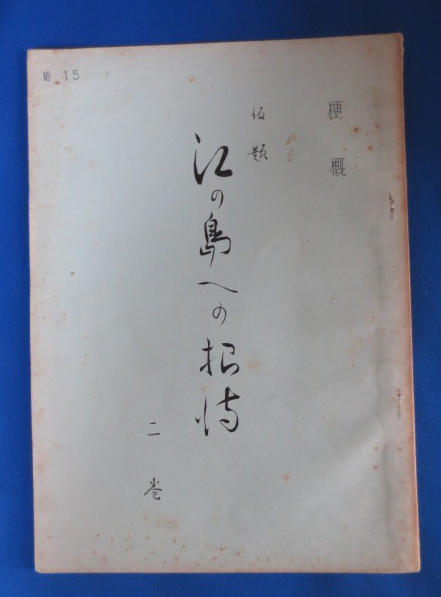 梗概
仮題
江の島への招待
二巻
15